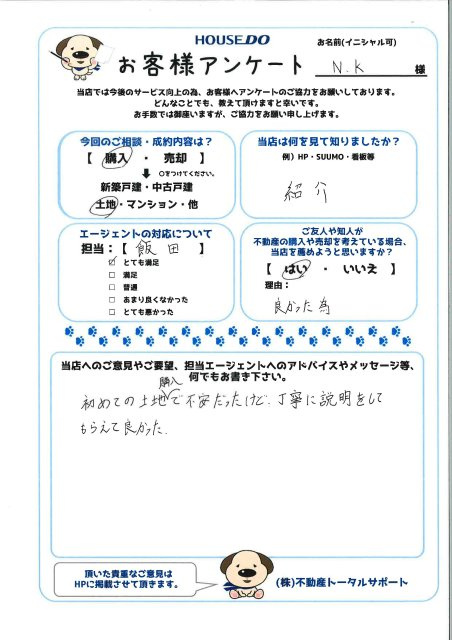 HOUSE DO
お客様アンケート
お名前(イニシャル可)
N.K 様
当店では今後のサービス向上の為、お客様へアンケートのご協力をお願いしております。
どんなことでも、教えて頂けますと幸いです。
お手数では御座いますが、ご協力をお願い申し上げます。
今回のご相談・成約内容は?
【 購入 ・ 売却 】
○をつけてください。
新築戸建・中古戸建
土地・マンション・他
当店は何を見て知りましたか?
例）HP・SUUMO・看板等
紹介
エージェントの対応について
担当:【 飯田 】
☑ とても満足
□ 満足
□ 普通
□ あまり良くなかった
□ とても悪かった
ご友人や知人が
不動産の購入や売却を考えている場合、
当店を薦めようと思いますか?
【 はい ・ いいえ 】
理由:
良かった為
当店へのご意見やご要望、担当エージェントへのアドバイスやメッセージ等、
何でもお書き下さい。
購入
初めての土地で不安だったけど、丁寧に説明をして
もらえて良かった.
頂いた貴重なご意見は
HPに掲載させて頂きます。
(株)不動産トータルサポート